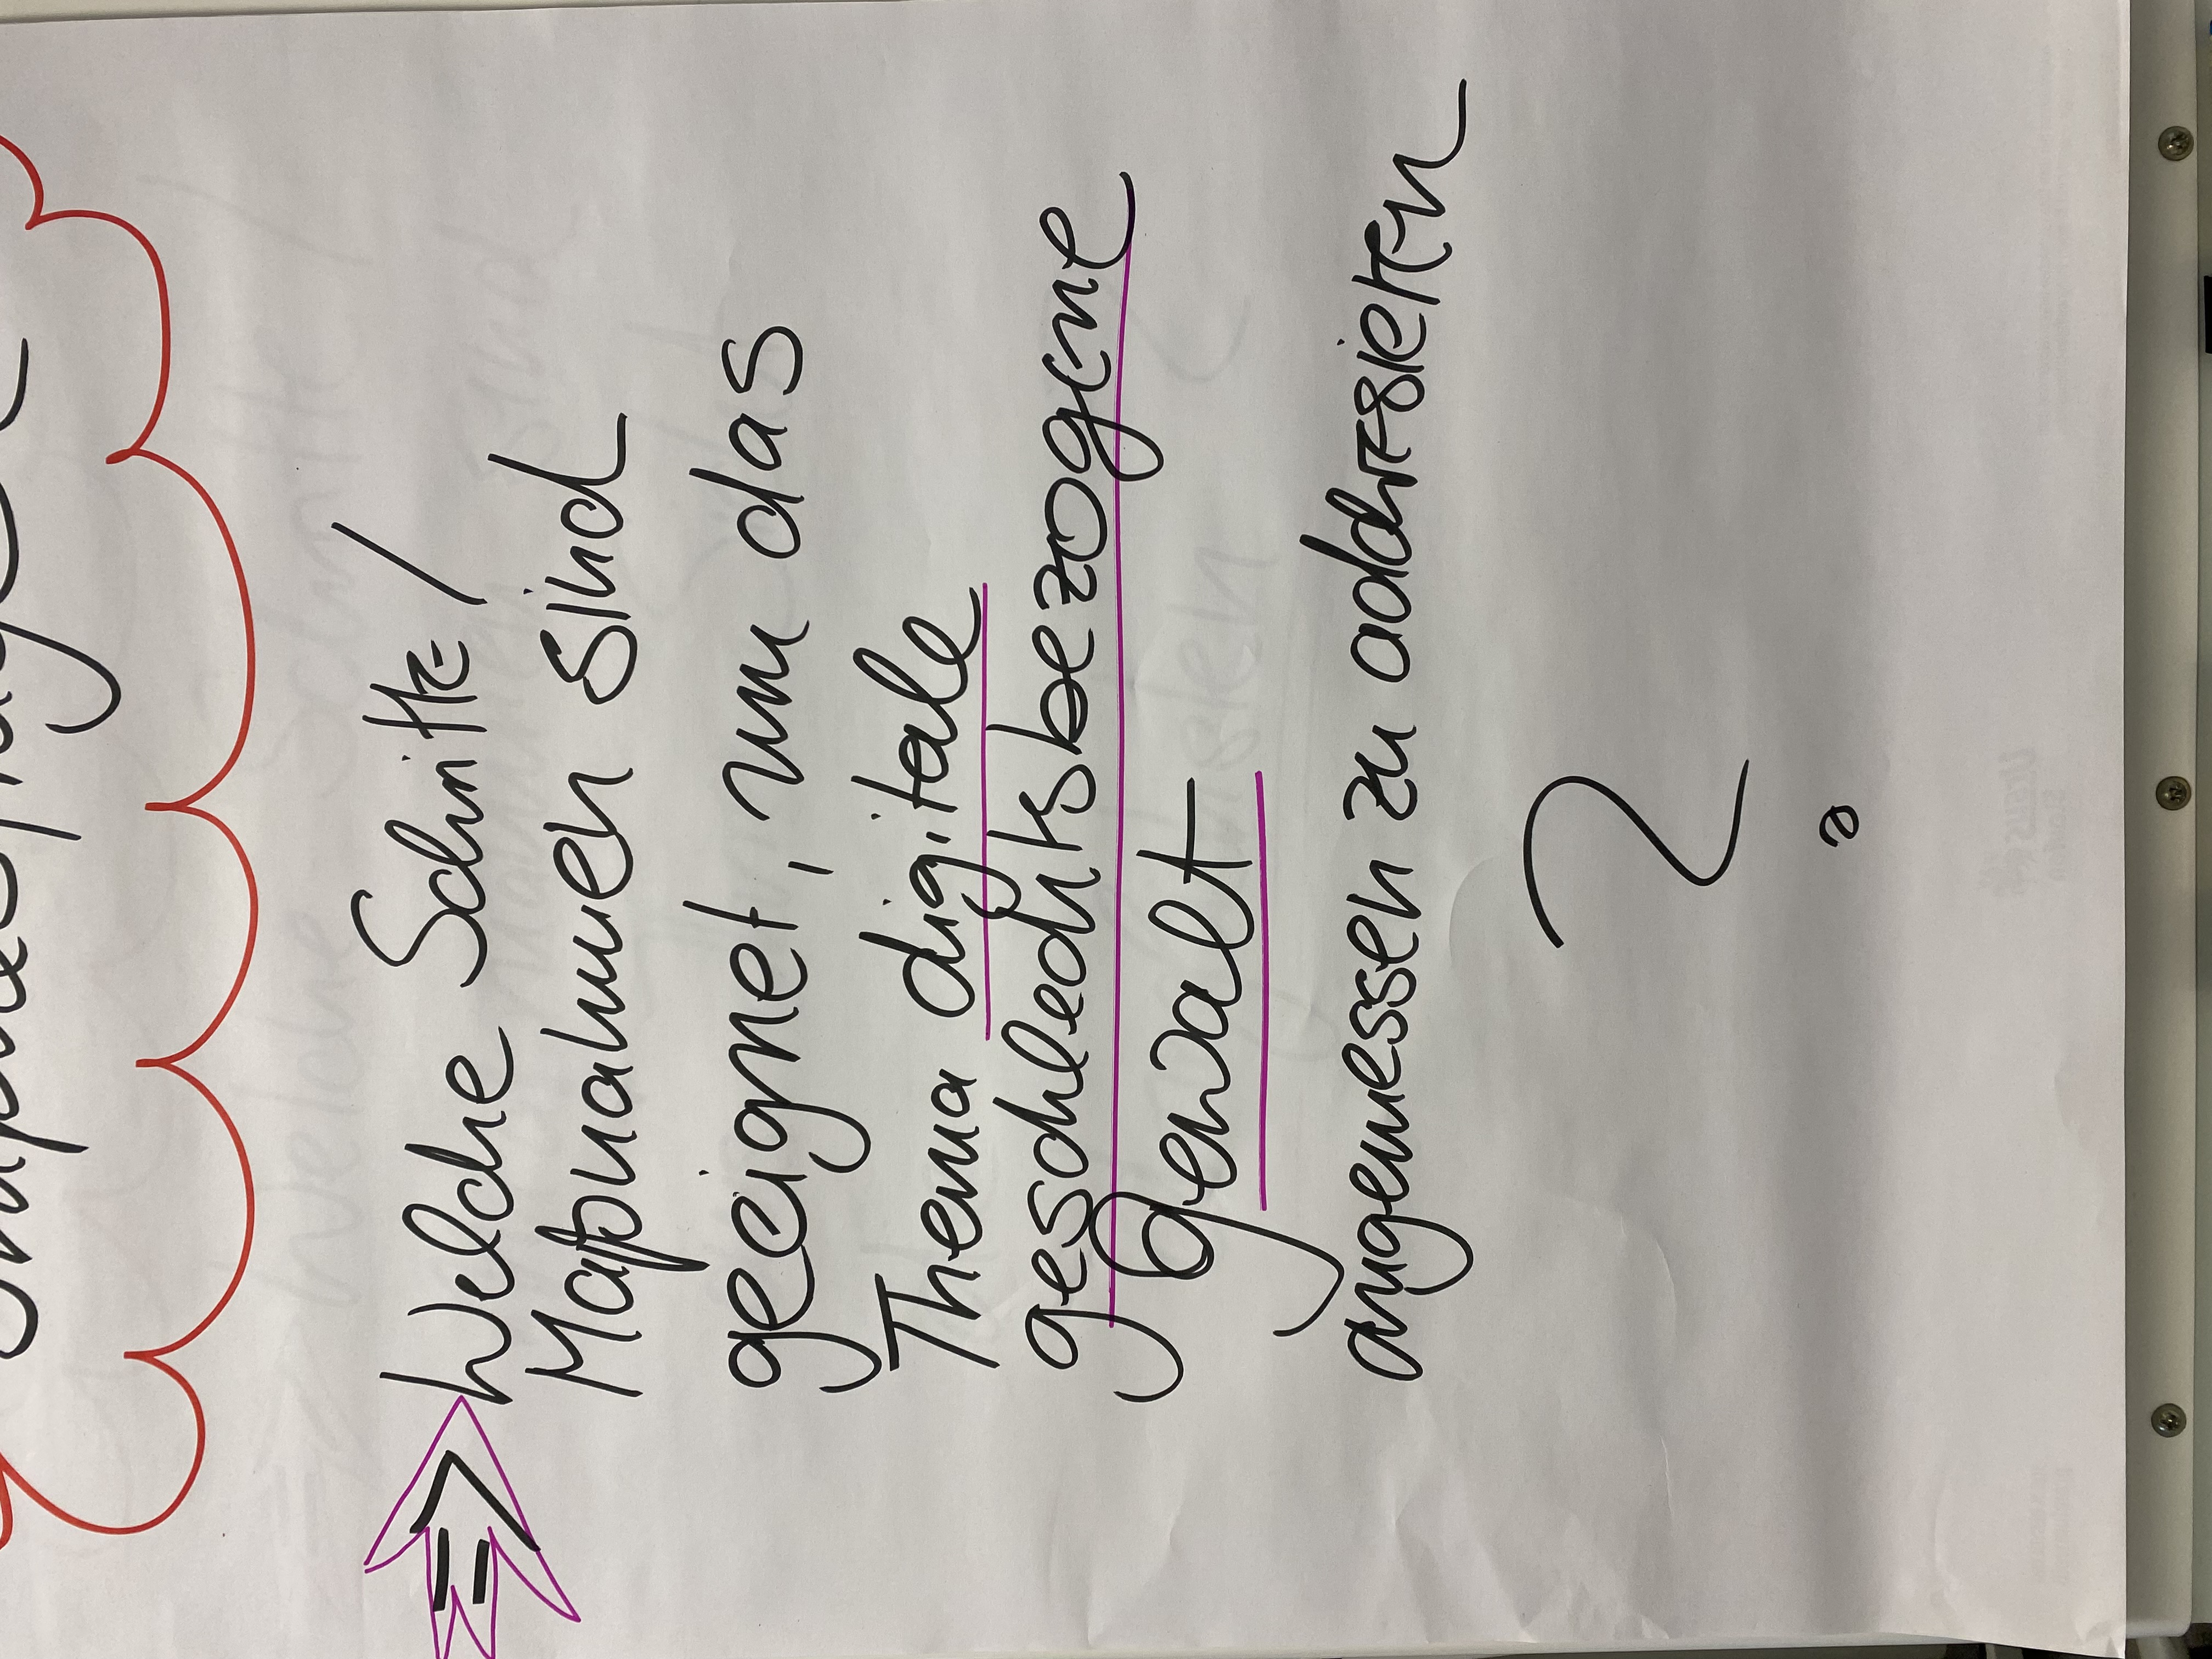 => Welche Schritte/
Maßnahmen sind
geeignet, um das
Thema digitale
geschlechtsbezogene
gewalt
angemessen zu addressieren
?